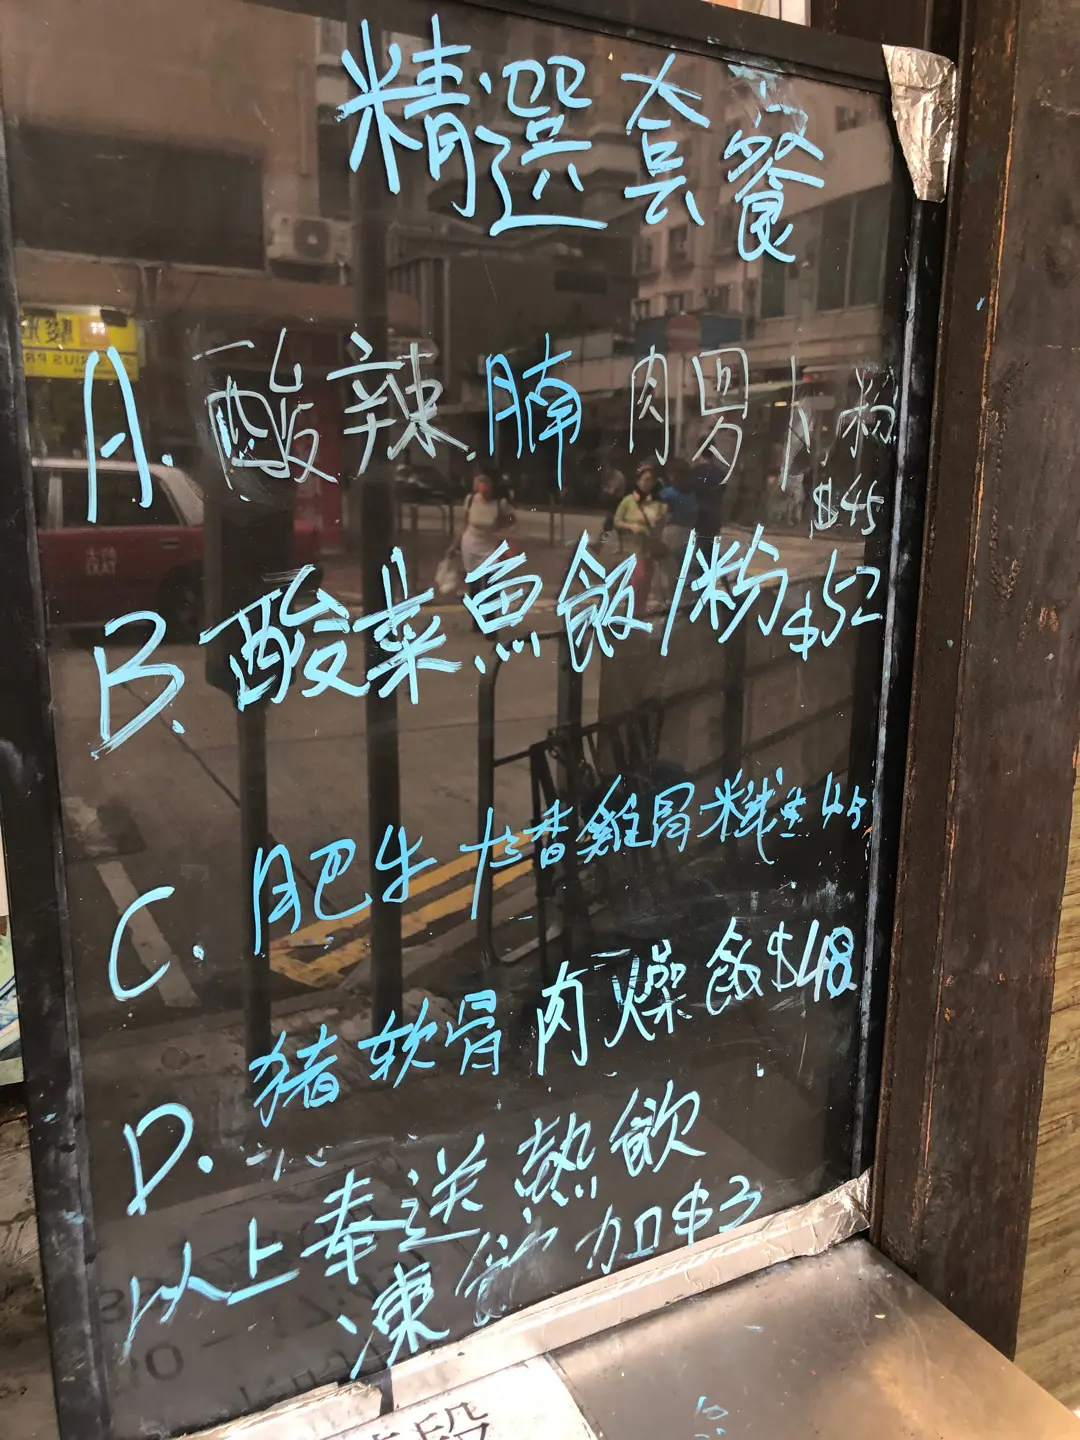 精選套餐
A. 酸辣腩肉 卜粉
$45
B. 酸菜魚飯/粉 $52
C. 肥牛 香雞 45
猪软骨肉燥飯$48
D.
以上奉送熱飲
凍飲加$3
段